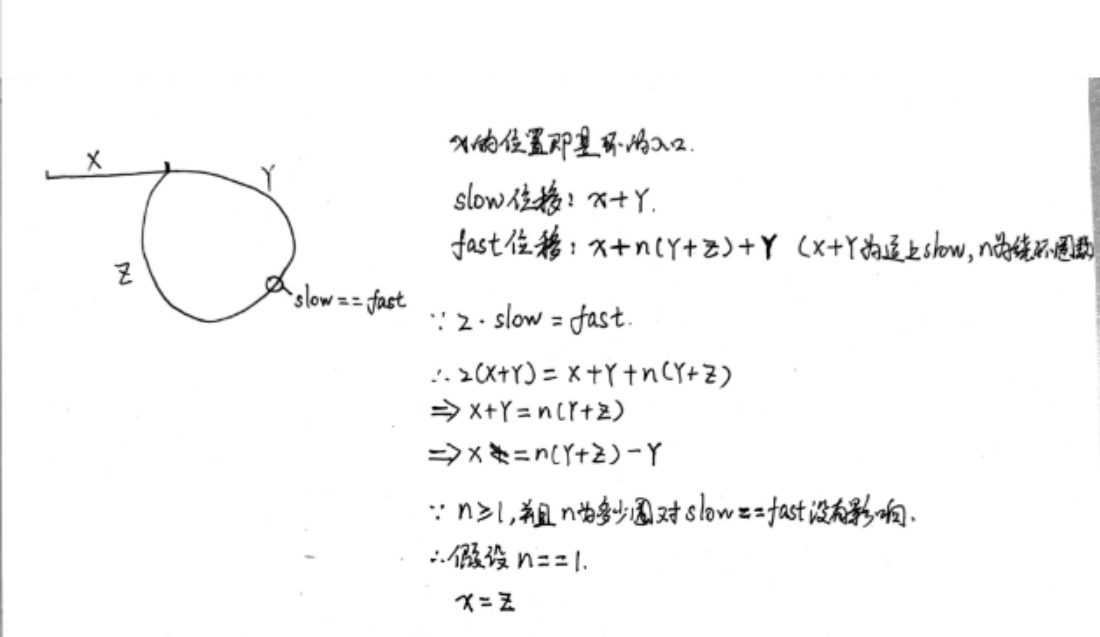 X
Y
Z
slow == fast
x的位置即是环的入口.
slow位移: x+Y.
fast位移: x+n(Y+Z)+Y (x+Y为追上slow, n为绕环圈数
∵ 2·slow = fast.
∴ 2(X+Y) = X+Y+n(Y+Z)
⇒ X+Y = n(Y+Z)
⇒ X = n(Y+Z)-Y
∵ n≥1, 并且n为多少圈对slow==fast没有影响.
∴ 假设 n==1.
x=Z